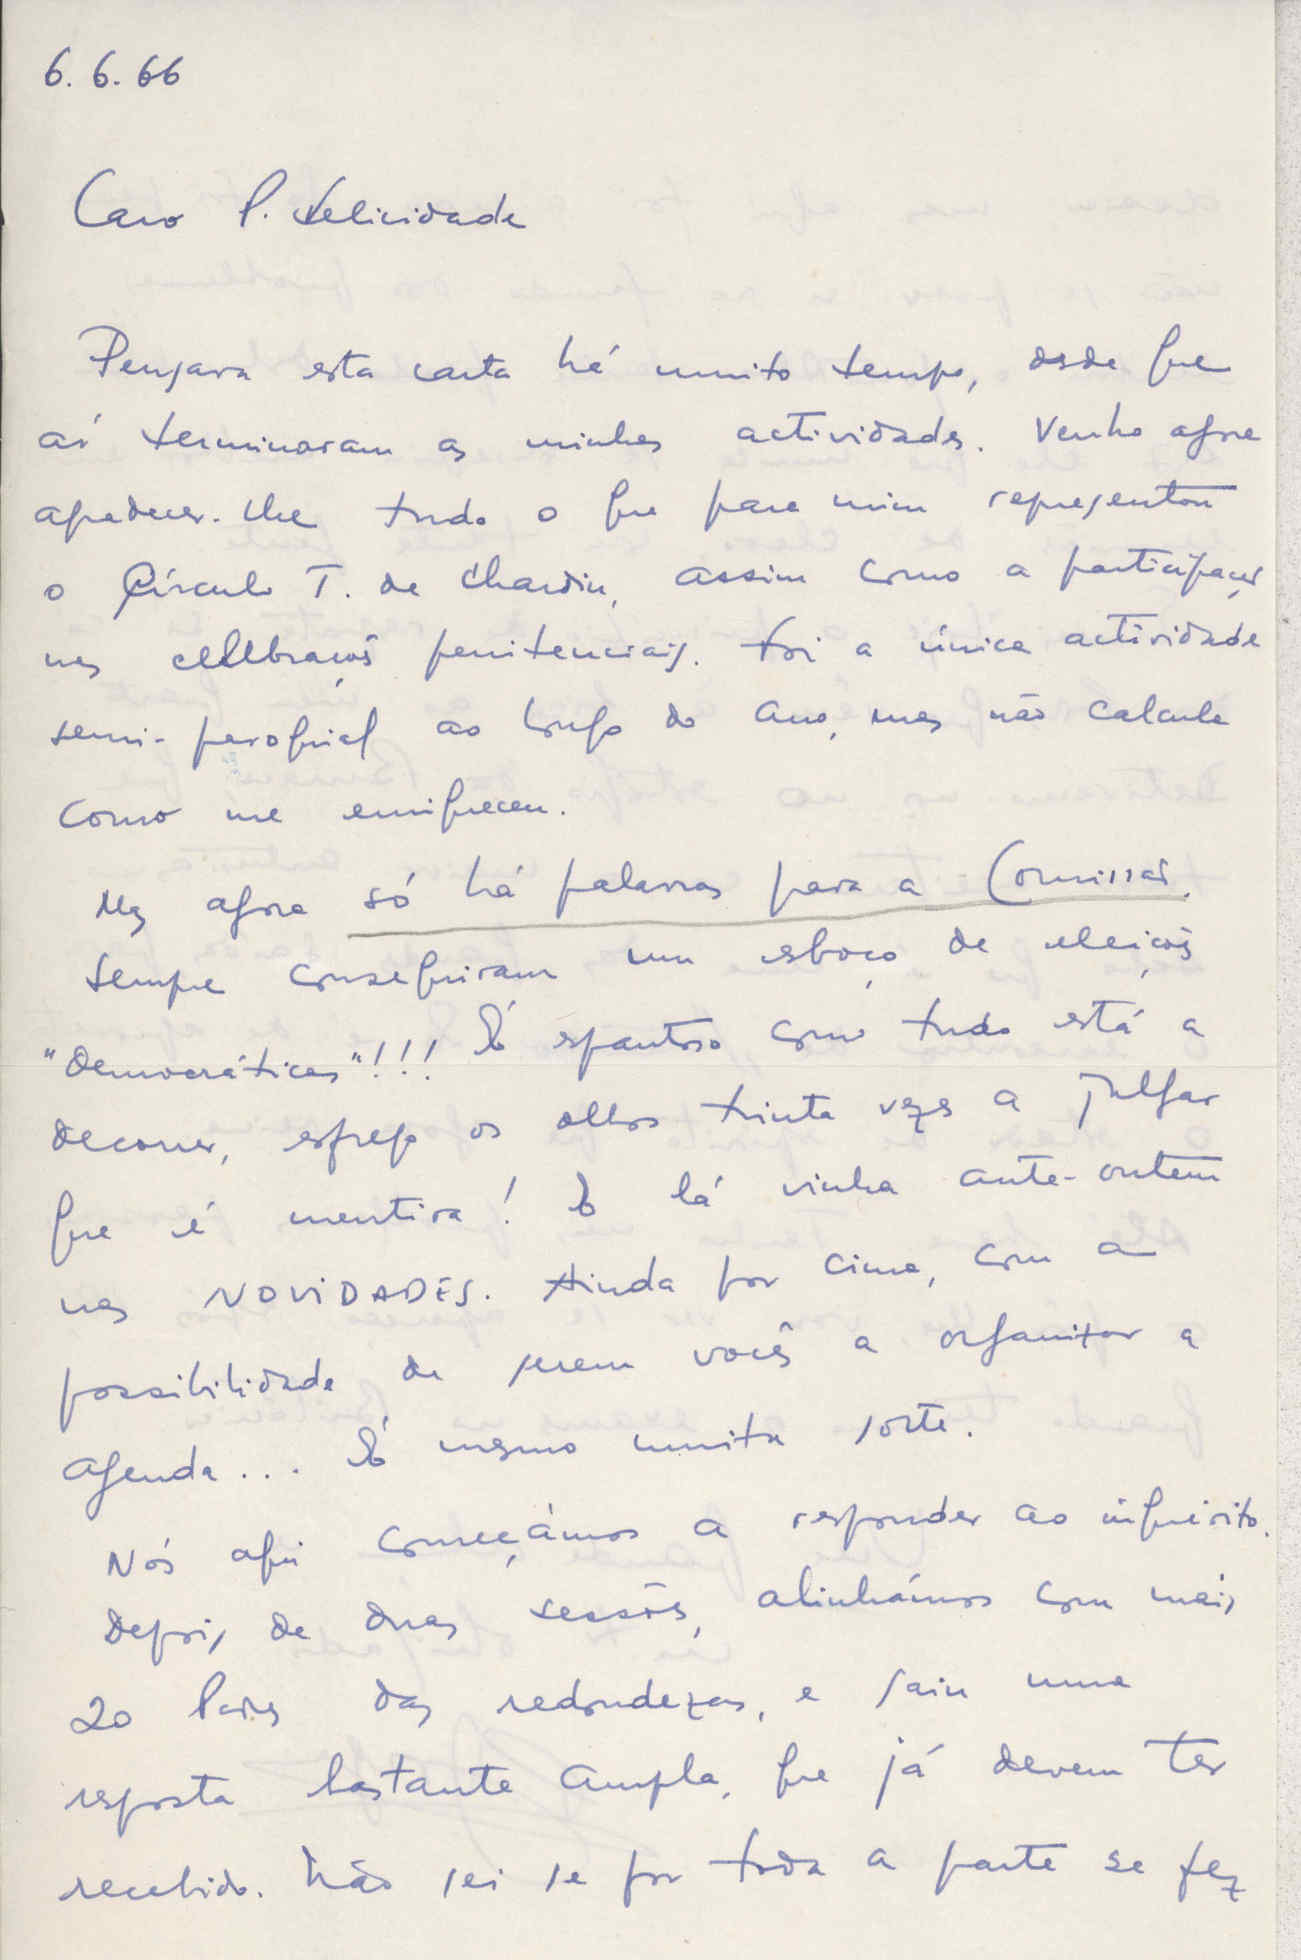 6. 6. 66
Caro P. Felicidade
Pensara esta carta há muito tempo, desde que
aí terminaram as minhas actividades. Venho agora
agradecer-lhe tudo o que para mim representou
o Círculo T. de Chardin, assim como a participação
nas celebrações penitenciais. Foi a única actividade
semi-paroquial ao longo do ano, mas não calcula
como me enriqueceu.
Mas agora só há palavras para a Comissão.
Sempre conseguiram um esboço de eleições
"democráticas"!!! É espantoso como tudo está a
decorrer, esfrego os olhos trinta vezes a julgar
que é mentira! E lá vinha ante-ontem
nas NOVIDADES. Ainda por cima, com a
possibilidade de serem vocês a organizar a
agenda... É mesmo muita sorte.
Nós aqui começámos a responder ao inquérito.
Depois de duas sessões, alinhámos com mais
20 Padres das redondezas, e saiu uma
resposta bastante ampla, que já devem ter
recebido. Não sei se por toda a parte se fez